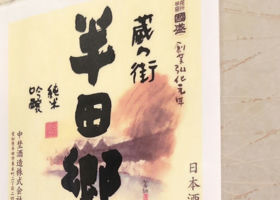 國盛
創業弘化元年
蔵の街
半田郷
純米
吟醸
中埜酒造株式会社
日本酒